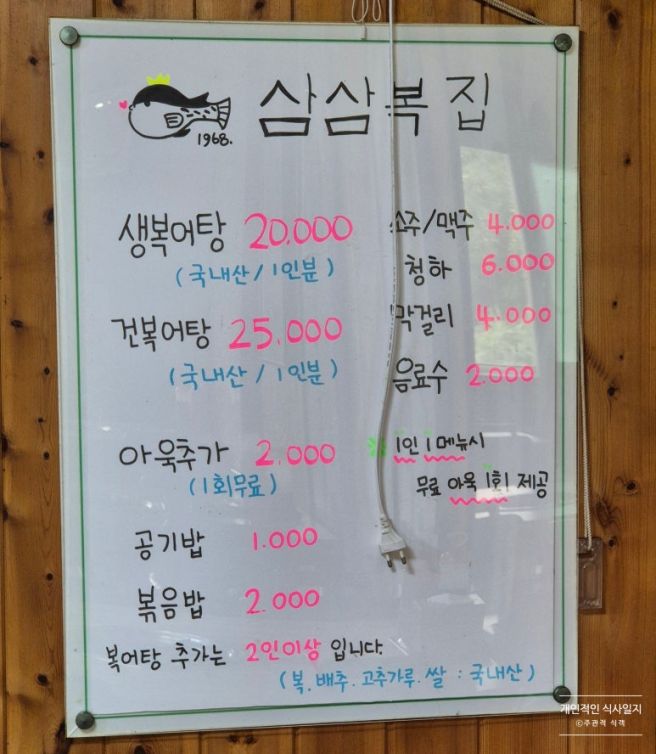 삼삼복집
1968.
생복어탕 20.000
(국내산/1인분)
건복어탕 25.000
(국내산/1인분)
아욱추가 2.000
(1회무료)
공기밥 1.000
볶음밥 2.000
복어탕 추가는 2인이상 입니다.
소주/맥주 4.000
청하 6.000
막걸리 4.000
음료수 2.000
※ 1인 1메뉴시
무료 아욱 1회 제공
(복.배추.고추가루.쌀 : 국내산)
개인적인 식사일지
©주관적 식객